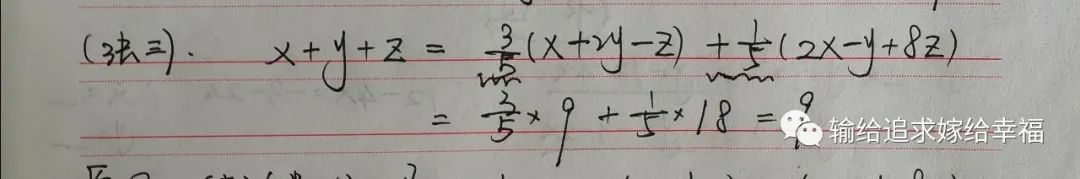 (张三). x+y+z = 3/5(x+2y-z) + 1/5(2x-y+8z)
= 3/5 × 9 + 1/5 × 18 = 9
输给追求嫁给幸福